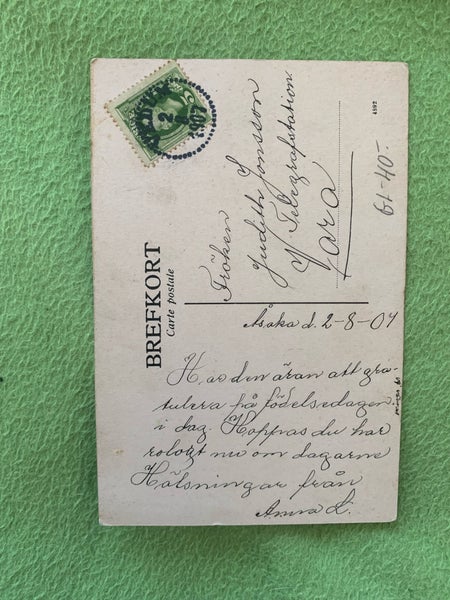 BREFKORT
Carte postale
2
1907
4592
61-40-
Fröken
Judith Jonsson
Telegrafstation
Vara
Åsaka d. 2-8-07
H. as den äran att gra-
tulera på födelsedagen
i dag. Hoppas du har
roligt nu om dagarne
Hälsningar från
Anna L.